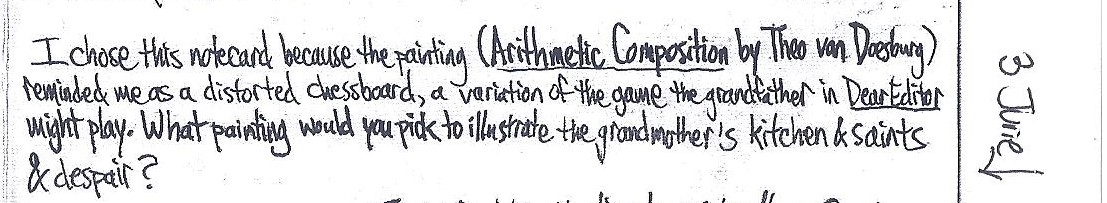 I chose this notecard because the painting (Arithmetic Composition by Theo van Doesburg)
reminded me as a distorted chessboard, a variation of the game the grandfather in Dear Editor
might play. What painting would you pick to illustrate the grandmother's kitchen & saints
& despair?
3 June